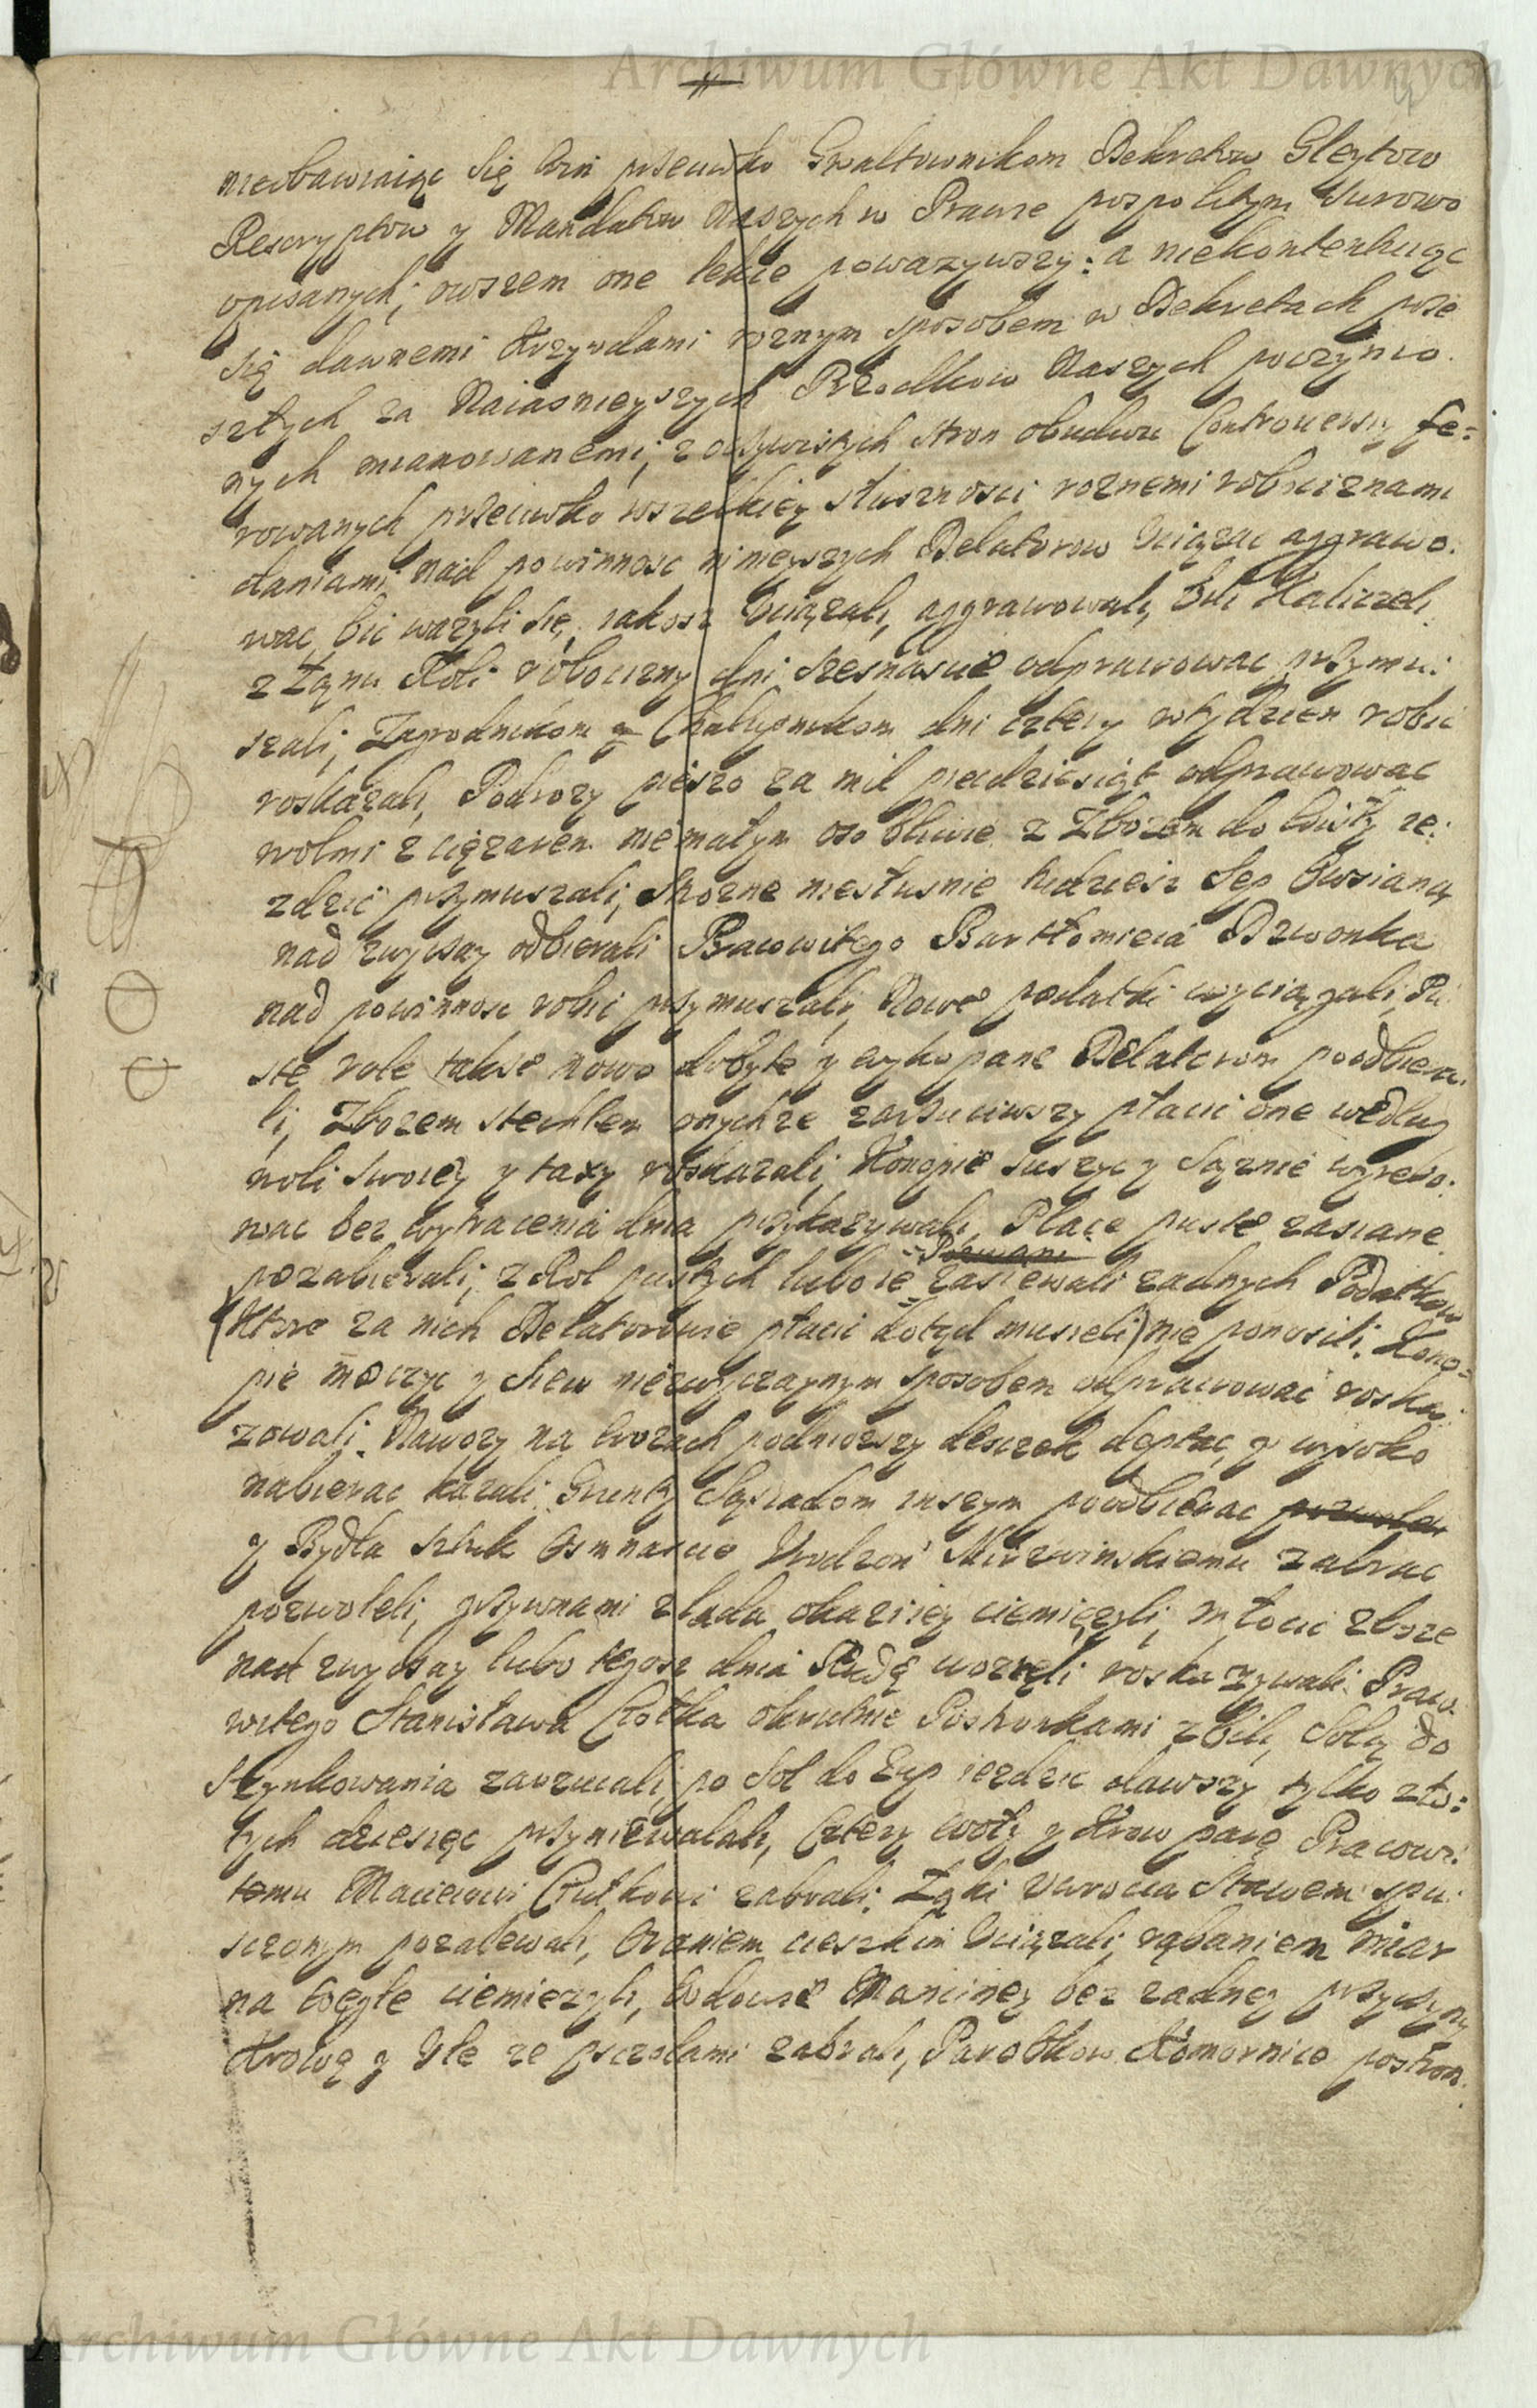 Archiwum Główne Akt Dawnych
nieobawiaiąc się Win przeciwko Gwałtownikom Dekretow Gleytow
Rescryptow y Mandatow Naszych w Prawie pospolitym Surowo
opisanych, owszem one lekce powazywszy: a niekontentuiąc
się dawnemi Krzywdami roznym sposobem w Dekretach prze
szłych za Naiasnieyszych Przodkow Naszych poczynio
nych mianowanemi, z oczywistych stron obudwu Controwersiy fe=
rowanych przeciwko wszelkiey słusznosci roznemi robociznami
daniami nad powinnosc ninieyszych Delatorow Uciązac aggrawo:
wac, bic wazyli się, iakosz Uciązali, aggrawowali, Bili Kaliczeli
z Łanu Roli robocizny dni szesnascie odprawowac przymu:
szali, Zagrodnikom y Chałupnikom dni cztery w tydzien robic
roskazali, Podrozy pieszo za mil piecdziesiąt odprawowac
wołmi z cięzarem niemałym osobliwie z Zbozem do Wisły ie:
zdzic przymuszali, Strozne niesłusznie tudziesz Sep Owsiany
nad zwyczay odbierali Pracowitego Bartłomieia Dzwonka
nad powinnosc robic przymuszali, Nowe podatki wyciągali, Pu
ste role takze nowo dobyte y wykopane Delatorom poodbiera:
li, Zbozem stechłem onychze zarzuciwszy płacic one według
woli swoiey y taxy roskazali, Konopie suszyc y Sąznie wyrębo:
wac bez wytracenia dnia przykazywali, Place puste zasiane
pozabierali, z Rol pustych lubo ie zasiewali zadnych Podatkow
(Ktore za nich Delatorowie płacic dotych musieli) nie ponosili, Kono=
pie moczyc y siew niezwyczaynym sposobem odprawowac roska:
zowali. Nawozy na wozach podniozszy desczek deptac, y wysoko
nabierac kazali Grunty Sąsiadom inszym poodbierac
y Bydła sztuk Osmnascie Urodzon Mierzwinskiemu zabrac
pozwoleli, grzywnami z lada okaziiey ciemięzyli, młocic zboze
nad zwyczay lubo tegosz dnia Rudę wozieli roskazywali Praco
witego Stanisława Czołka okrutnie Postronkami zbili, Solą do
Szynkowania zarzucali, po Sol do Zup iezdzic dawszy tylko zło:
tych dziesięc przyniewalali, Cztery woły y Krow parę Pracowi:
temu Macieiowi Czułkowi zabrali. Łąki Uwrocia Stawem spu:
sczonym pozalewali, Oraniem cieszkim Uciązali, rąbaniem miar
na Węgle ciemiezyli, Wdowie Marciney bez zadney przyczyny
Krowę y Ule ze psczołami zabrali, Parobkow Komornice postron:
Archiwum Główne Akt Dawnych